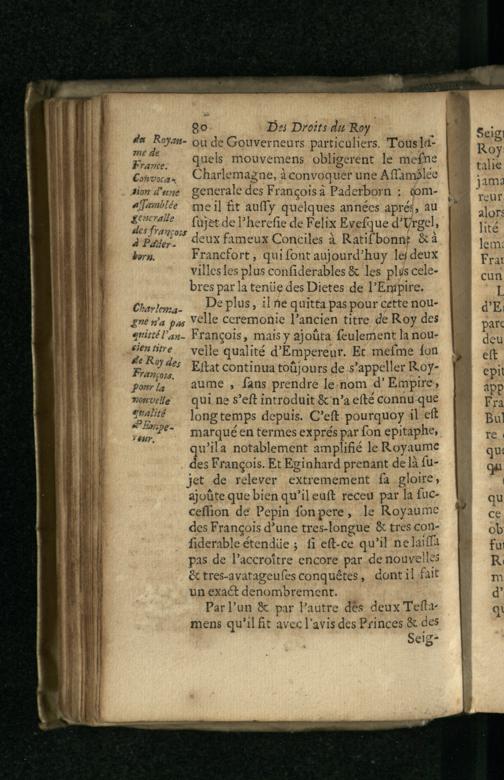 80 Des Droits du Roy
du Royau-
me de
France.
Convoca-
tion d'une
assamblée
generalle
des françois
à Pader-
born.
ou de Gouverneurs particuliers. Tous les-
quels mouvemens obligerent le mesme
Charlemagne, à convoquer une Assamblée
generale des François à Paderborn : com-
me il fit aussy quelques années aprés, au
sujet de l'heresie de Felix Evesque d'Urgel,
deux fameux Conciles à Ratisbonne & à
Francfort, qui sont aujourd'huy les deux
villes les plus considerables & les plus cele-
bres par la tenüe des Dietes de l'Empire.
Charlema-
gne n'a pas
quitté l'an-
cien titre
de Roy des
François.
pour la
nouvelle
qualité
d'Empe-
reur.
De plus, il ne quitta pas pour cette nou-
velle ceremonie l'ancien titre de Roy des
François, mais y ajoûta seulement la nou-
velle qualité d'Empereur. Et mesme son
Estat continua toûjours de s'appeller Roy-
aume, sans prendre le nom d'Empire,
qui ne s'est introduit & n'a esté connu que
long temps depuis. C'est pourquoy il est
marqué en termes exprés par son epitaphe,
qu'il a notablement amplifié le Royaume
des François. Et Eginhard prenant de là su-
jet de relever extremement sa gloire,
ajoûte que bien qu'il eust receu par la suc-
cession de Pepin son pere, le Royaume
des François d'une tres-longue & tres con-
siderable étendüe ; si est-ce qu'il ne laissa
pas de l'accroître encore par de nouvelles
& tres-avatageuses conquêtes, dont il fait
un exact denombrement.
Par l'un & par l'autre des deux Testa-
mens qu'il fit avec l'avis des Princes & des
Seig-